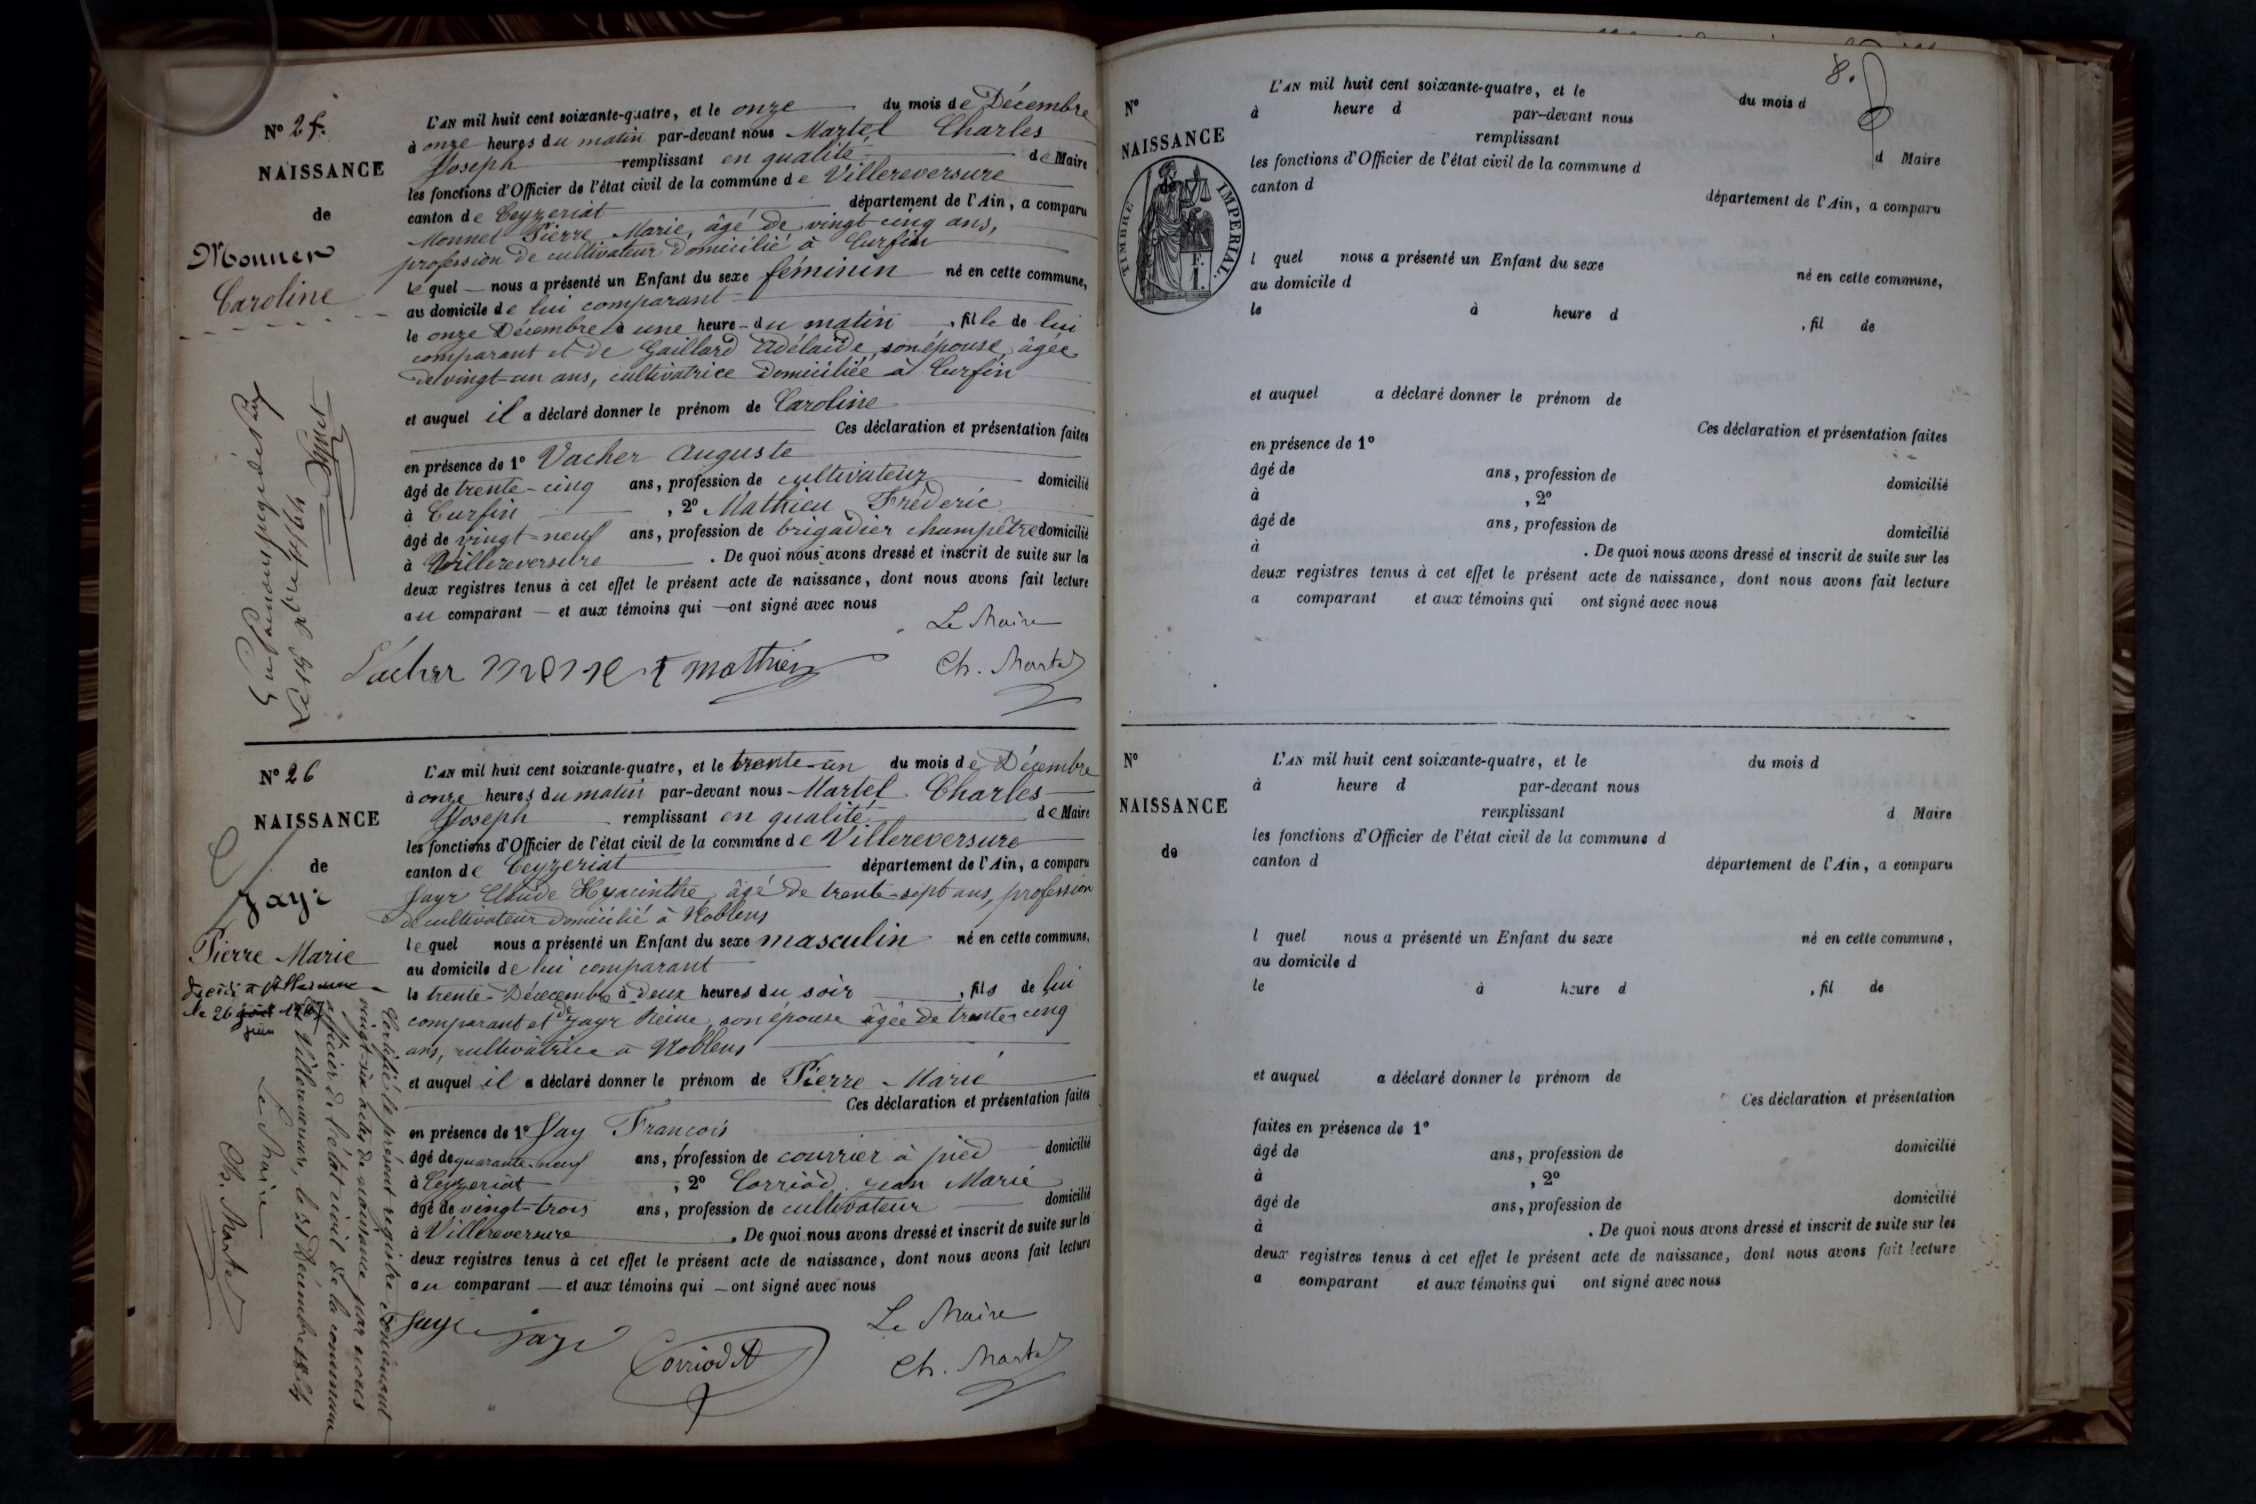 N° 25.
NAISSANCE
de
Monnet
Caroline
L'AN mil huit cent soixante-quatre, et le onze du mois de Décembre
à onze heures du matin par-devant nous Martel Charles
Joseph remplissant en qualité de Maire
les fonctions d'Officier de l'état civil de la commune de Villereversure
canton de Ceyzeriat département de l'Ain, a comparu
Monnet Pierre Marie, âgé de vingt-cinq ans,
profession de cultivateur domicilié à Curfin
lequel nous a présenté un Enfant du sexe féminin né en cette commune,
au domicile de lui comparant
le onze Décembre à une heure du matin, fille de lui
comparant et de Gaillard Adélaïde, son épouse, âgée
de vingt-un ans, cultivatrice domiciliée à Curfin
et auquel il a déclaré donner le prénom de Caroline
Ces déclaration et présentation faites
en présence de 1° Vacher Auguste
âgé de trente-cinq ans, profession de cultivateur domicilié
à Curfin, 2° Mathieu Fréderic
âgé de vingt-neuf ans, profession de brigadier champêtre domicilié
à Villereversure. De quoi nous avons dressé et inscrit de suite sur les
deux registres tenus à cet effet le présent acte de naissance, dont nous avons fait lecture
au comparant et aux témoins qui ont signé avec nous
Le Maire
Vacher monet mathieu Ch. Martel
N° 26
NAISSANCE
de
Jayr
Pierre Marie
le 26 août
juin
L'AN mil huit cent soixante-quatre, et le trente-un du mois de Décembre
à onze heures du matin par-devant nous Martel Charles
Joseph remplissant en qualité de Maire
les fonctions d'Officier de l'état civil de la commune de Villereversure
canton de Ceyzeriat département de l'Ain, a comparu
Jayr Claude Hyacinthe, âgé de trente-sept ans, profession
de cultivateur domicilié à Noblens
lequel nous a présenté un Enfant du sexe masculin né en cette commune,
au domicile de lui comparant
le trente Décecembre à deux heures du soir, fils de lui
comparant et de Jayr Reine, son épouse âgée de trente-cinq
ans, cultivatrice à Noblens
et auquel il a déclaré donner le prénom de Pierre Marie
Ces déclaration et présentation faites
en présence de 1° Jay François
âgé de quarante-neuf ans, profession de courrier à pied domicilié
à Ceyzeriat, 2° Corriod Jean Marie
âgé de vingt-trois ans, profession de cultivateur domicilié
à Villereversure. De quoi nous avons dressé et inscrit de suite sur les
deux registres tenus à cet effet le présent acte de naissance, dont nous avons fait lecture
au comparant et aux témoins qui ont signé avec nous
Le Maire
Jayr Corriod Ch. Martel
Certifié le présent registre contenant
vingt-six actes de naissance par nous
officier de l'état civil de la commune
Villereversure, le 31 Décembre 1864
Le Maire
Ch. Martel
8.
N°
NAISSANCE
de
TIMBRE IMPERIAL.
F.
1.
L'AN mil huit cent soixante-quatre, et le du mois d
à heure d par-devant nous
remplissant d Maire
les fonctions d'Officier de l'état civil de la commune d
canton d département de l'Ain, a comparu
l quel nous a présenté un Enfant du sexe né en cette commune,
au domicile d
le à heure d , fil de
et auquel a déclaré donner le prénom de
Ces déclaration et présentation faites
en présence de 1°
âgé de ans, profession de domicilié
à , 2°
âgé de ans, profession de domicilié
à . De quoi nous avons dressé et inscrit de suite sur les
deux registres tenus à cet effet le présent acte de naissance, dont nous avons fait lecture
a comparant et aux témoins qui ont signé avec nous
N°
NAISSANCE
de
L'AN mil huit cent soixante-quatre, et le du mois d
à heure d par-devant nous
remplissant d Maire
les fonctions d'Officier de l'état civil de la commune d
canton d département de l'Ain, a comparu
l quel nous a présenté un Enfant du sexe né en cette commune,
au domicile d
le à heure d , fil de
et auquel a déclaré donner le prénom de
Ces déclaration et présentation
faites en présence de 1°
âgé de ans, profession de domicilié
à , 2°
âgé de ans, profession de domicilié
à . De quoi nous avons dressé et inscrit de suite sur les
deux registres tenus à cet effet le présent acte de naissance, dont nous avons fait lecture
a comparant et aux témoins qui ont signé avec nous